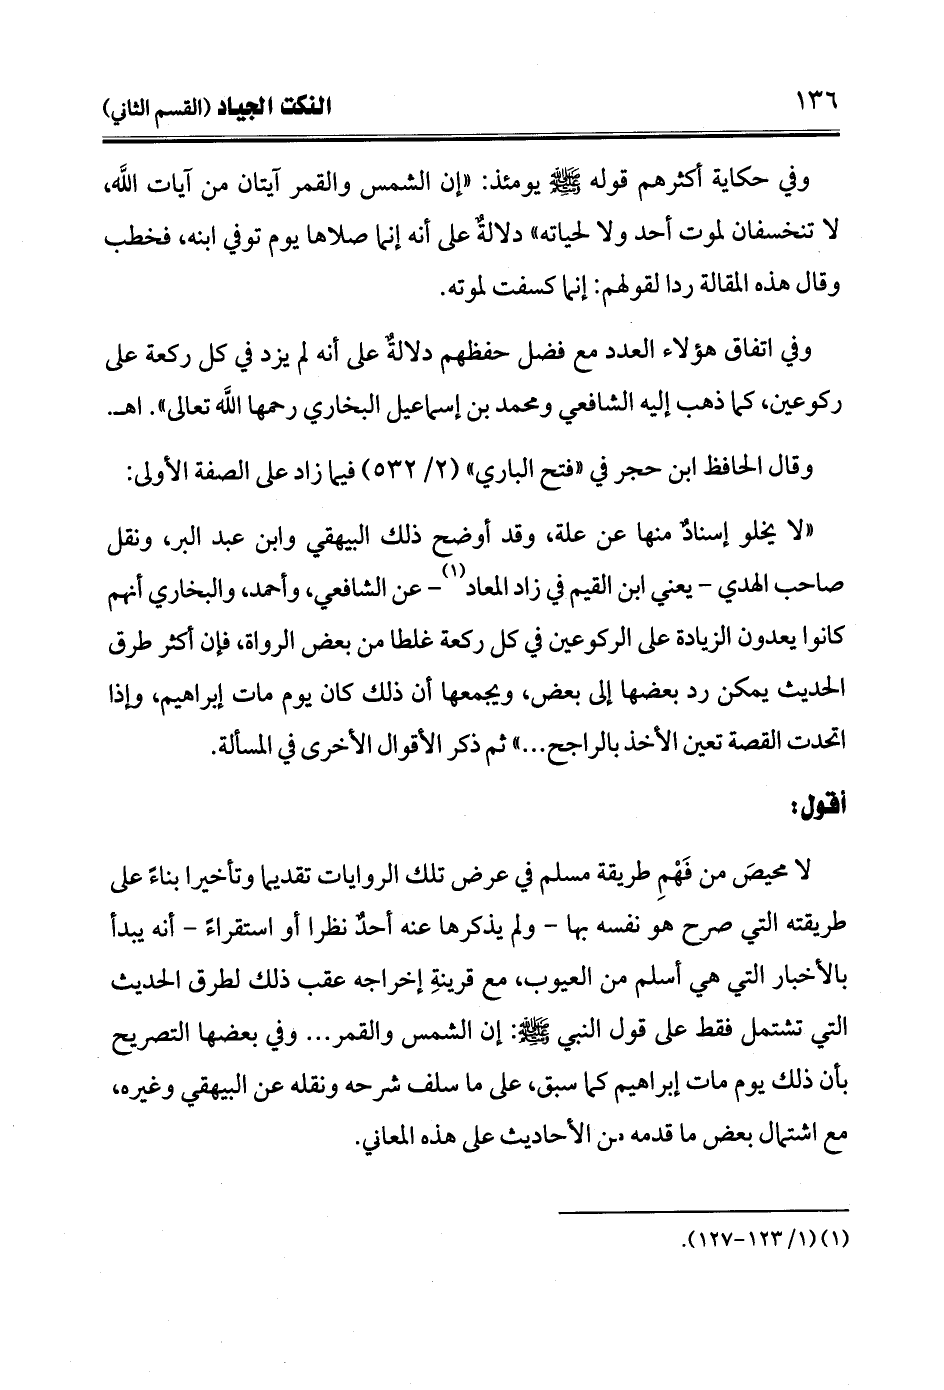 ١٣٦ النكت الجياد (القسم الثاني)
وفي حكاية أكثرهم قوله ﷺ يومئذ: «إن الشمس والقمر آيتان من آيات اللَّه،
لا تنخسفان لموت أحد ولا لحياته» دلالةٌ على أنه إنما صلاها يوم توفي ابنه، فخطب
وقال هذه المقالة ردا لقولهم: إنما كسفت لموته.
وفي اتفاق هؤلاء العدد مع فضل حفظهم دلالةٌ على أنه لم يزد في كل ركعة على
ركوعين، كما ذهب إليه الشافعي ومحمد بن إسماعيل البخاري رحمها اللَّه تعالى». اهـ.
وقال الحافظ ابن حجر في «فتح الباري» (٢/ ٥٣٢) فيما زاد على الصفة الأولى:
«لا يخلو إسنادٌ منها عن علة، وقد أوضح ذلك البيهقي وابن عبد البر، ونقل
صاحب الهدي - يعني ابن القيم في زاد المعاد(١) - عن الشافعي، وأحمد، والبخاري أنهم
كانوا يعدون الزيادة على الركوعين في كل ركعة غلطا من بعض الرواة، فإن أكثر طرق
الحديث يمكن رد بعضها إلى بعض، ويجمعها أن ذلك كان يوم مات إبراهيم، وإذا
اتحدت القصة تعين الأخذ بالراجح...» ثم ذكر الأقوال الأخرى في المسألة.
أقول:
لا محيصَ من فَهْمِ طريقة مسلم في عرض تلك الروايات تقديما وتأخيرا بناءً على
طريقته التي صرح هو نفسه بها - ولم يذكرها عنه أحدٌ نظرا أو استقراءً - أنه يبدأ
بالأخبار التي هي أسلم من العيوب، مع قرينةِ إخراجه عقب ذلك لطرق الحديث
التي تشتمل فقط على قول النبي ﷺ: إن الشمس والقمر... وفي بعضها التصريح
بأن ذلك يوم مات إبراهيم كما سبق، على ما سلف شرحه ونقله عن البيهقي وغيره،
مع اشتمال بعض ما قدمه من الأحاديث على هذه المعاني.
(١) (١/ ١٢٣-١٢٧).